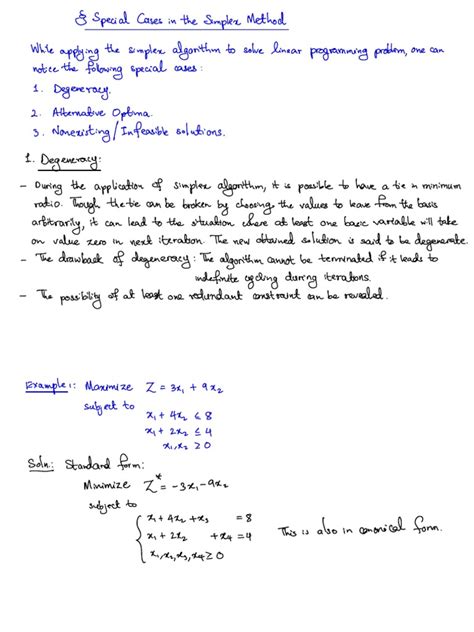 § Special Cases in the Simplex Method
While applying the simplex algorithm to solve linear programming problem, one can
notice the following special cases:
1. Degeneracy.
2. Alternative Optima.
3. Nonexisting/Infeasible solutions.
1. Degeneracy:
- During the application of simplex algorithm, it is possible to have a tie in minimum
ratio. Though the tie can be broken by choosing the values to leave from the basis
arbitrarily, it can lead to the situation where at least one basic variable will take
on value zero in next iteration. The new obtained solution is said to be degenerate.
- The drawback of degeneracy: The algorithm cannot be terminated if it leads to
indefinite cycling during iterations.
- The possibility of at least one redundant constraint can be revealed.
Example 1: Maximize Z = 3x₁ + 9x₂
subject to
x₁ + 4x₂ ≤ 8
x₁ + 2x₂ ≤ 4
x₁, x₂ ≥ 0
Soln: Standard form:
Minimize Z* = -3x₁ - 9x₂
subject to
x₁ + 4x₂ + x₃ = 8
x₁ + 2x₂ + x₄ = 4
x₁, x₂, x₃, x₄ ≥ 0
This is also in canonical form.